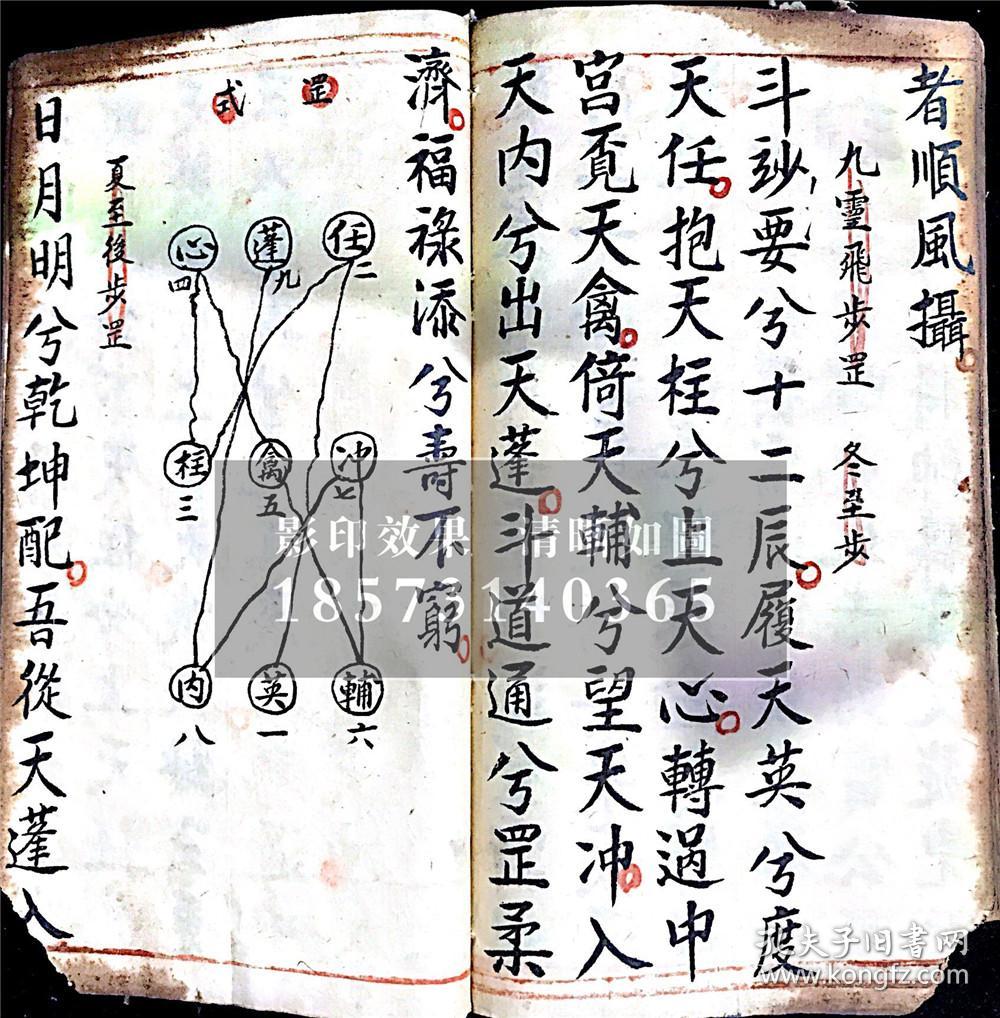 者順風攝
九靈飛步罡 冬至步
斗玅要兮十二辰履天英兮度
天任抱天柱兮上天心轉過中
宮覔天禽倚天輔兮望天冲入
天內兮出天蓬斗道通兮罡柔
濟福祿添兮壽不窮
罡式
任二
蓬九
心四
冲七
禽五
柱三
輔六
英一
内八
夏至後步罡
日月明兮乾坤配吾從天蓬入
影印效果 清晰如圖
18573140365
孔夫子旧书网
www.kongfz.com